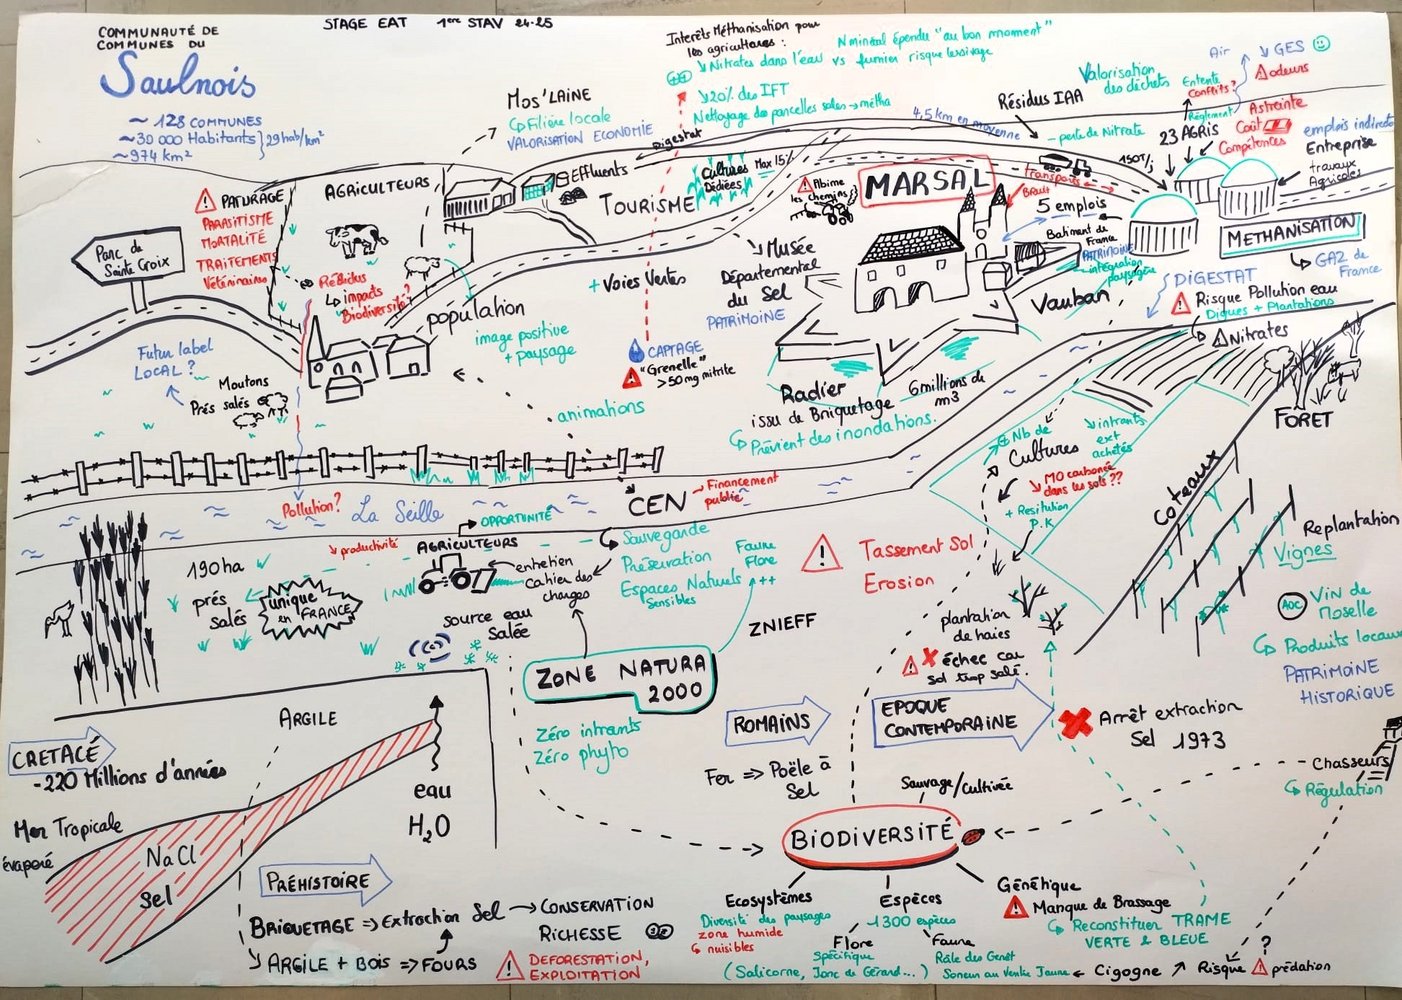 COMMUNAUTÉ DE
COMMUNES DU
Saulnois
~ 128 COMMUNES
~30 000 Habitants } 29 hab/km²
~974 km²
STAGE EAT 1ère STAV 24-25
Intérêts Méthanisation pour
les agriculteurs :
N minéral épendu "au bon moment"
↘ Nitrates dans l'eau vs fumier risque lessivage
↘20% des IFT
Nettoyage des parcelles sales → métha
4,5 km en moyenne
Mos'LAINE
Filière locale
VALORISATION ECONOMIE
Digestat
Résidus IAA
- perte de Nitrate
Valorisation
des déchets
Air
↘ GES
odeurs
Entente
Conflits ?
Règlement
23 AGRIS
Astreinte
Coût
Compétences
emplois indirects
Entreprise
travaux
Agricoles
150T/j
METHANISATION
GAZ de
France
PATURAGE
PARASITISME
MORTALITÉ
TRAITEMENTS
Vétérinaires
AGRICULTEURS
Résidus
impacts
Biodiversité?
Effluents
TOURISME
Cultures
Dédiées
Max 15%
Abime
les chemins
MARSAL
Transports
Bruit
5 emplois
Batiment de
France
PATRIMOINE
intégration
paysagère
DIGESTAT
Risque Pollution eau
Digues + Plantations
Nitrates
Parc de
Sainte Croix
population
image positive
+ paysage
+ Voies Vertes
Musée
Départemental
du Sel
PATRIMOINE
Vauban
CAPTAGE
"Grenelle"
>50 mg nitrite
Radier
issu de Briquetage 6 millions de
m3
Prévient des inondations.
FORET
Futur label
LOCAL ?
Moutons
Prés salés
animations
⊕ Nb de
Cultures
↘ intrants
ext
achetés
↘ MO carbonée
dans les sols ??
+ Resitution
P.K
Coteaux
Replantation
Vignes
AOC
Vin de
Moselle
Produits locaux
PATRIMOINE
HISTORIQUE
Pollution?
La Seille
CEN → Financement
public
OPPORTUNITÉ
↘ productivité
AGRICULTEURS
entretien
Cahier des
charges
Sauvegarde
Préservation
Espaces Naturels
Sensibles
Faune
Flore
++
Tassement Sol
Erosion
190ha
prés
salés
unique
en FRANCE
source eau
Salée
ZNIEFF
plantation
de haies
échec car
sol trop salé.
ZONE NATURA
2000
Zéro intrants
Zéro phyto
ROMAINS
Fer => Poële à
Sel
EPOQUE
CONTEMPORAINE
Arrêt extraction
Sel 1973
Chasseurs
Régulation
CRETACÉ
-220 Millions d'années
ARGILE
Mer Tropicale
évaporé
NaCl
Sel
eau
H₂O
Sauvage/cultivée
BIODIVERSITÉ
PRÉHISTOIRE
BRIQUETAGE => Extraction Sel → CONSERVATION
RICHESSE
ARGILE + BOIS => FOURS
DEFORESTATION,
EXPLOITATION
Ecosystèmes
Diversité des paysages
zone humide
nuisibles
Espèces
1300 espèces
Flore
Spécifique
(Salicorne, Jonc de Gérard...)
Faune
Râle des Genêt
Soneur au Ventre Jaune ← Cigogne ↗ Risque
Génétique
Manque de Brassage
Reconstituer TRAME
VERTE & BLEUE
?
prédation